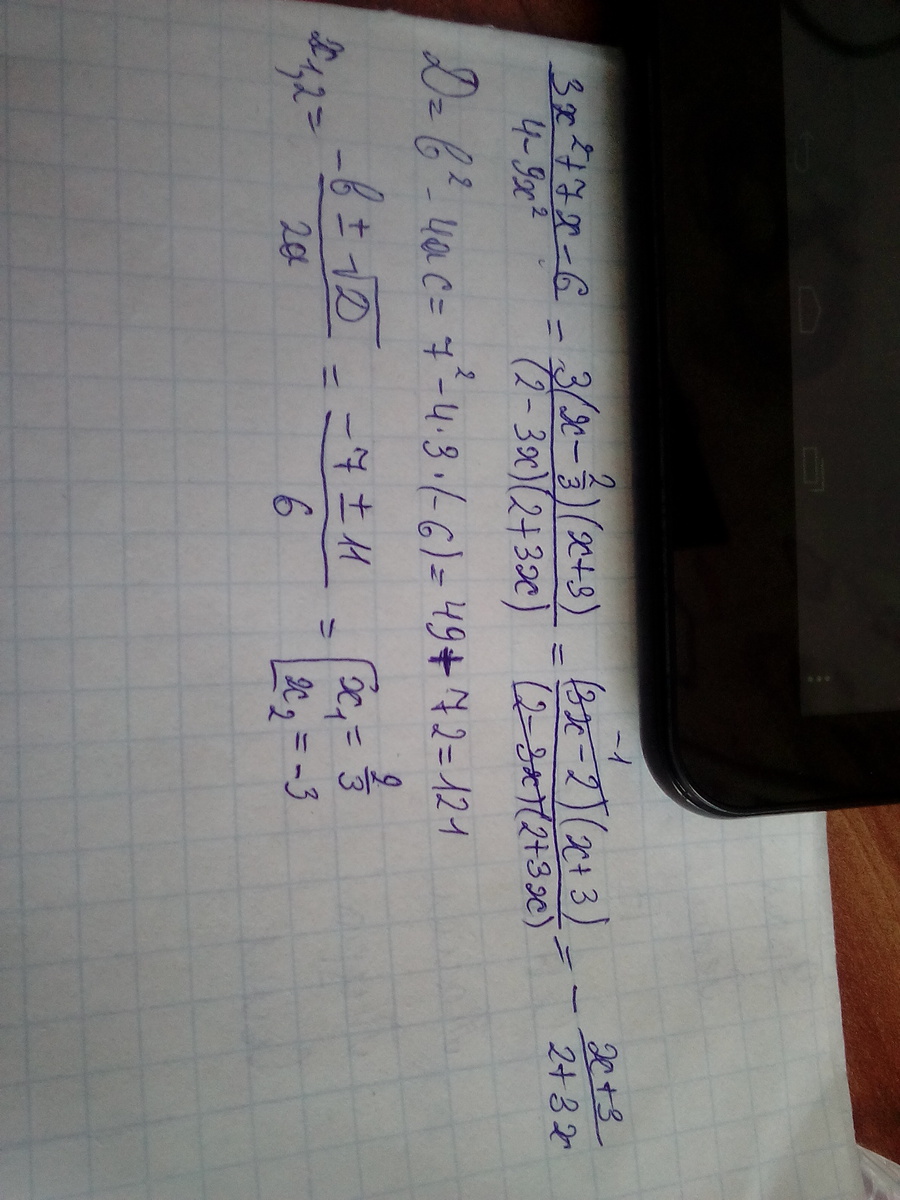 (3x²+7x-6)/(4-9x²) = 3(x-2/3)(x+3)/((2-3x)(2+3x)) = (3x-2)⁻¹(x+3)/((2-3x)(2+3x)) = - (x+3)/(2+3x)
D = b² - 4ac = 7² - 4·3·(-6) = 49+72 = 121
x₁,₂ = (-b±√D)/2a = (-7±11)/6 = [x₁ = 2/3
[x₂ = -3